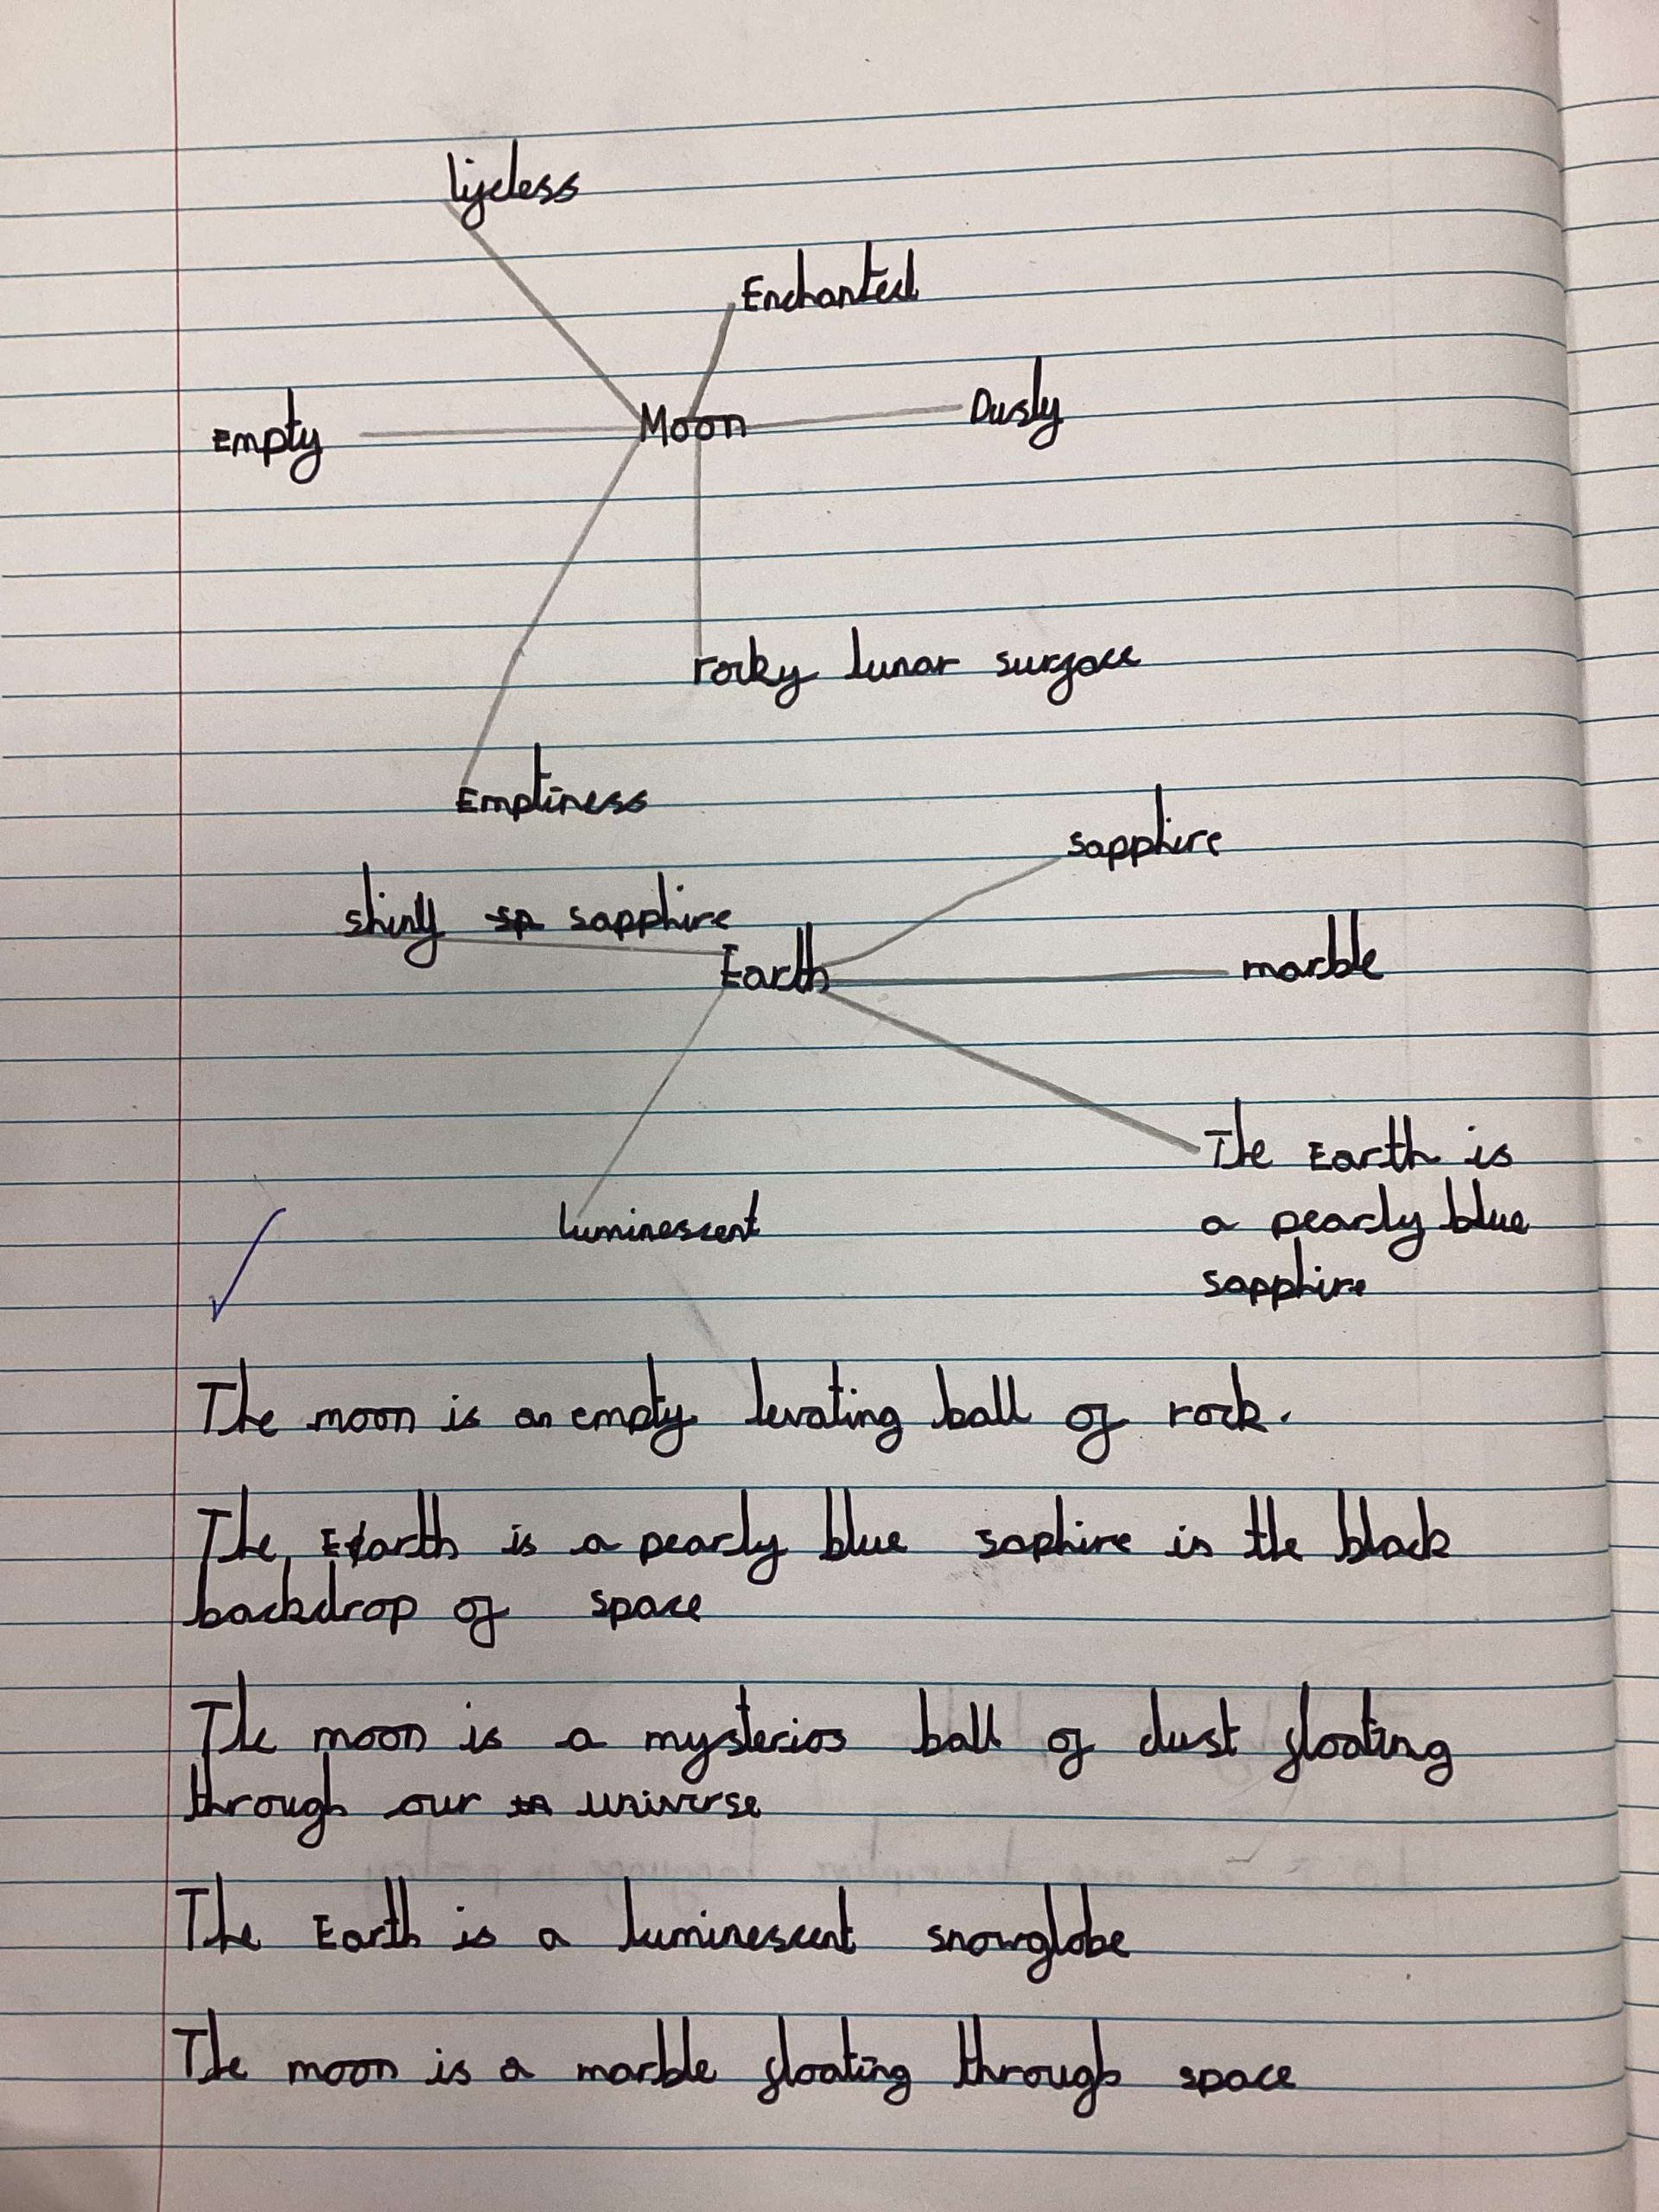 lifeless
Enchanted
Moon
Dusty
Empty
rocky lunar surface
Emptiness
sapphire
shiny sp sapphire
Earth
marble
The Earth is
a pearly blue
sapphire
luminescent
The moon is an empty levating ball of rock.
The Earth is a pearly blue saphire in the black
backdrop of space
The moon is a mysterios ball of dust floating
through our universe
The Earth is a luminescent snowglobe
The moon is a marble floating through space